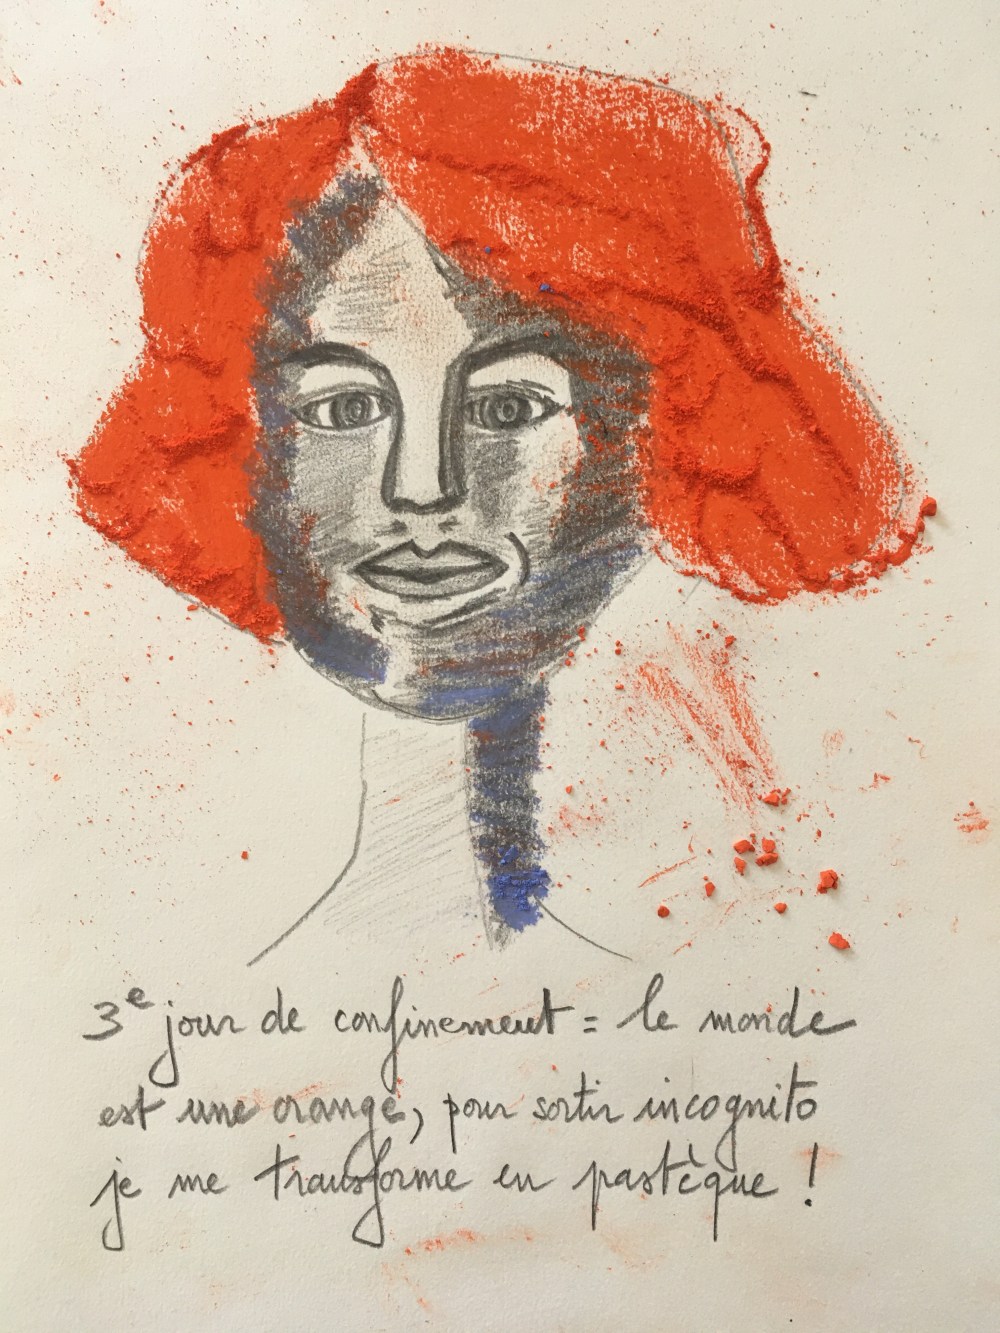 3e jour de confinement = le monde
est une orange, pour sortir incognito
je me transforme en pastèque !